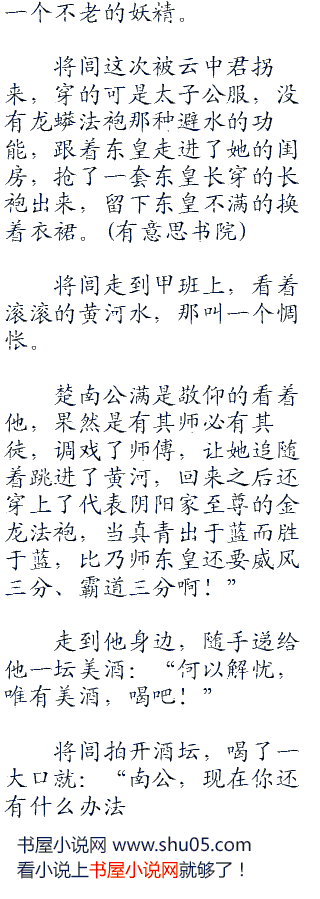 一个不老的妖精。
将闾这次被云中君拐
来，穿的可是太子公服，没
有龙蟒法袍那种避水的功
能，跟着东皇走进了她的闺
房，抢了一套东皇长穿的长
袍出来，留下东皇不满的换
着衣裙。(有意思书院)
将闾走到甲班上，看着
滚滚的黄河水，那叫一个惆
怅。
楚南公满是敬仰的看着
他，果然是有其师必有其
徒，调戏了师傅，让她追随
着跳进了黄河，回来之后还
穿上了代表阴阳家至尊的金
龙法袍，当真青出于蓝而胜
于蓝，比乃师东皇还要威风
三分、霸道三分啊！”
走到他身边，随手递给
他一坛美酒：“何以解忧，
唯有美酒，喝吧！”
将闾拍开酒坛，喝了一
大口就：“南公，现在你还
有什么办法
书屋小说网 www.shu05.com
看小说上书屋小说网就够了！